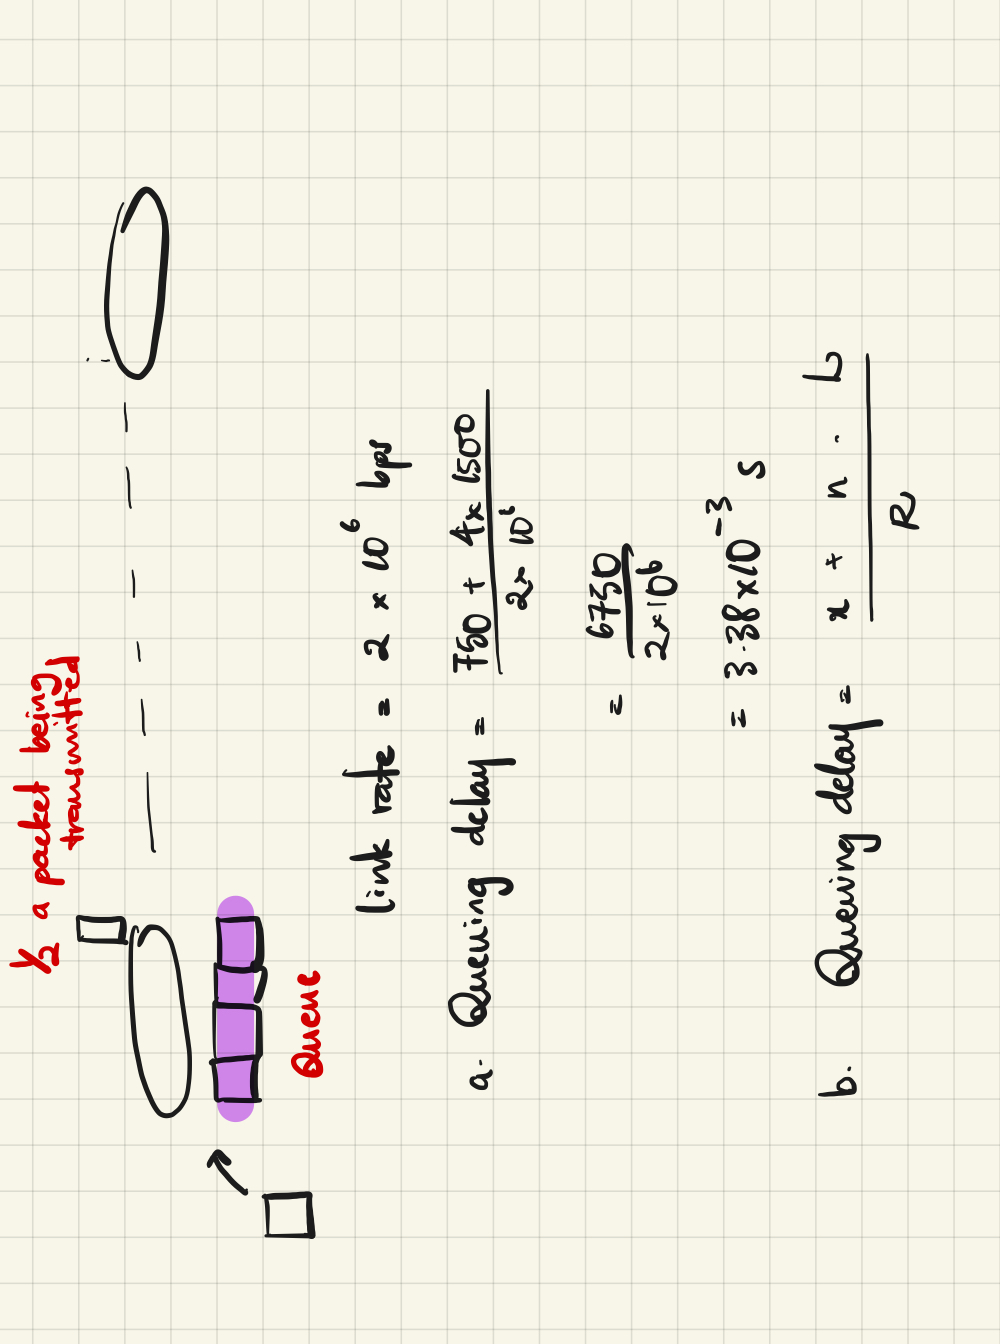 1/2 a packet being
transmitted
Queue
link rate = 2 × 10⁶ bps
a. Queuing delay = 750 + 4× 1500
2× 10⁶
= 6750
2×10⁶
= 3.38×10⁻³ s
b. Queuing delay = x + n . L
R